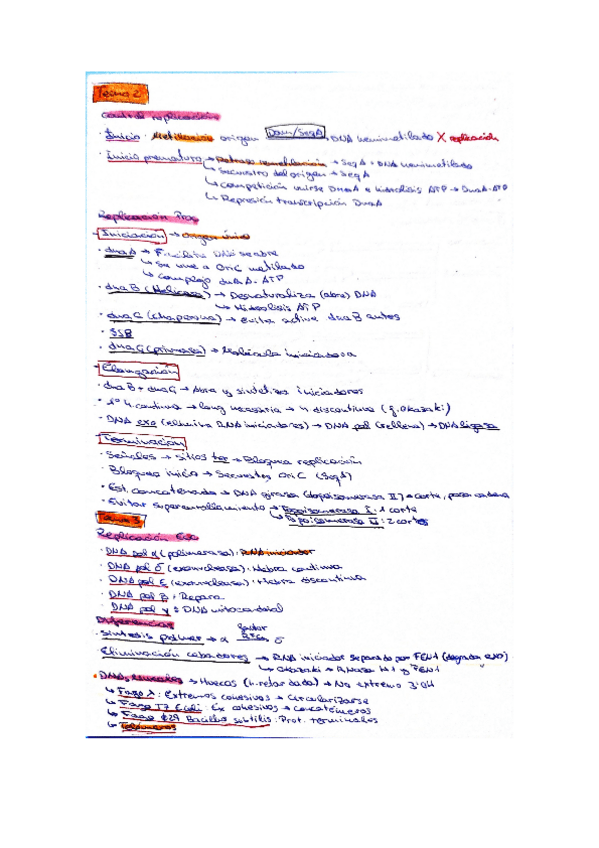 Tema 2
Control replicación
· Inicio · Metilación origen Dam/SeqA, DNA hemimetilado X replicación
· Inicio prematuro → Retraso remetilación → SeqA + DNA hemimetilado
↳ Secuestro del origen → SeqA
↳ Competición unirse DnaA e hidrólisis ATP → DnaA-ATP
↳ Represión transcripción DnaA
Replicación Proc
- Iniciación → Origen único
· dnaA → Facilita DNA se abre
↳ Se une a OriC metilado
↳ Complejo dnaA-ATP
· dnaB (Helicasa) → Desnaturaliza (abre) DNA
↳ Hidrólisis ATP
· dnaC (chaperona) → Evitar active dnaB antes
· SSB
· dnaG (primasa) → Molécula iniciadora
- Elongación
· dnaB + dnaG → Abra y sintetiza iniciadores
· 1º h. continua → long necesaria → h discontinua (f. Okazaki)
· DNA exo (elimina RNA iniciadores) → DNA pol (rellena) → DNA ligasa
- Terminación
· Señales → sitios ter → Bloquea replicación
· Bloquea inicio → Secuestro OriC (SeqA)
· Est. concatenada → DNA girasa (topoisomerasa II) → Corte, pasar cadena
· Evitar superenrollamiento → Topoisomerasa I: 1 corte
↳ Topoisomerasa II: 2 cortes
Tema 3
Replicación Euc
· DNA pol α (polimerasa): RNA iniciador
· DNA pol δ (exonucleasa) · Hebra continua
· DNA pol ε (exonucleasa) · Hebra discontinua
· DNA pol β : Repara
· DNA pol γ : DNA mitocondrial
Diferencias
· Síntesis polimer → α factor δ
· Eliminación cebadores → RNA iniciador separado por FEN1 (degrada exo)
↳ Okazaki → RNasa H1 y FEN1
· DNAs lineales → Huecos (h. retardada) → No extremo 3'OH
↳ Fago λ : Extremos cohesivos → Circularizarse
↳ Fago T7 E.coli : Ex cohesivos → concatómeros
↳ Fago φ29 Bacillus subtilis : Prot. terminales
↳ Telómeros